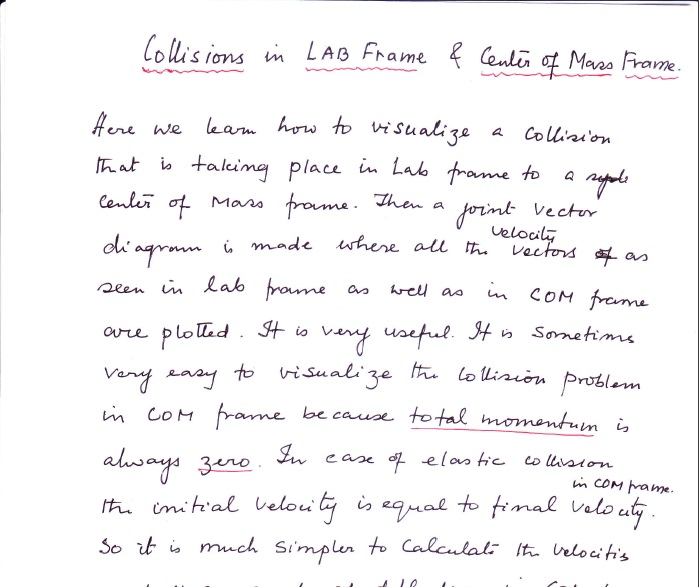 Collisions in LAB Frame & Center of Mass Frame.
Here we learn how to visualize a collision
that is taking place in Lab frame to a
Center of Mass frame. Then a joint vector
diagram is made where all the velocity vectors as
seen in lab frame as well as in COM frame
are plotted. It is very useful. It is sometims
very easy to visualize the collision problem
in COM frame because total momentum is
always zero. In case of elastic collision
in COM frame.
the initial velocity is equal to final velocity.
So it is much simpler to Calculate the velocitis